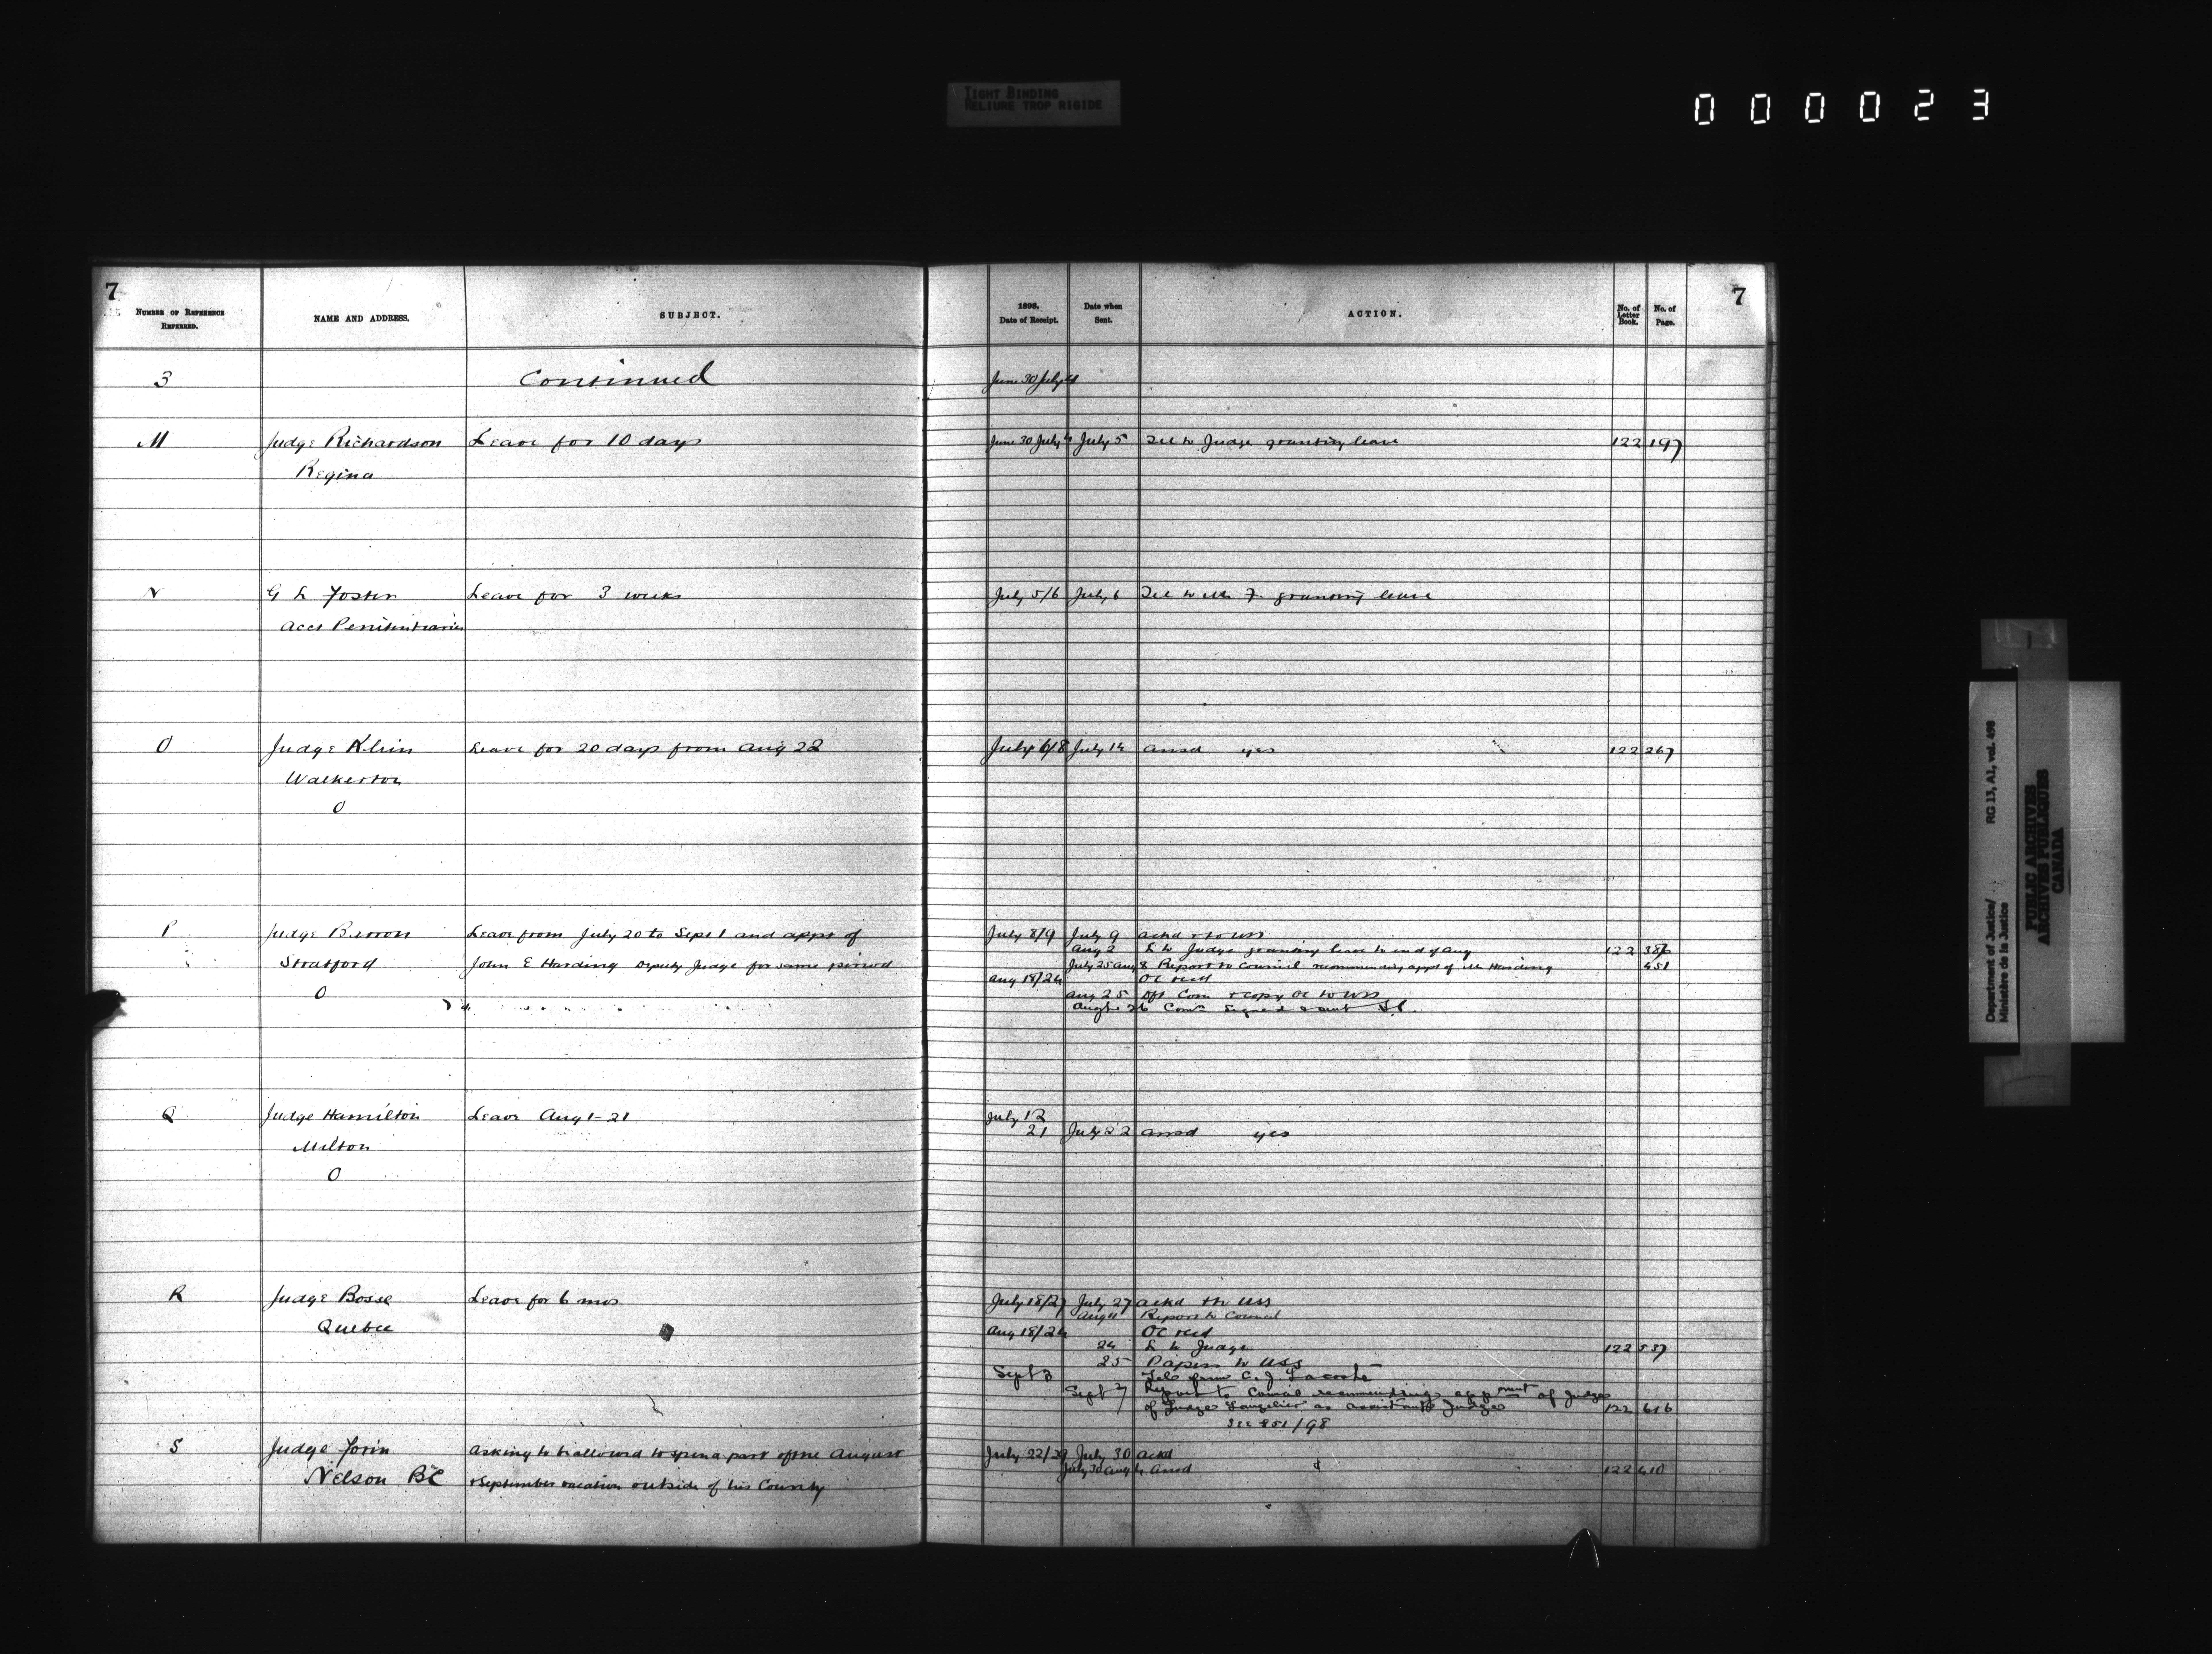 TIGHT BINDING
RELIURE TROP RIGIDE
000023
7
NUMBER OF REFERENCE REFERRED.
NAME AND ADDRESS.
SUBJECT.
1898.
Date of Receipt.
Date when Sent.
ACTION.
No. of Letter Book.
No. of Page.
7
3 Continued June 30 July 4
M Judge Richardson Leave for 10 days June 30 July 4 July 5 Tel to Judge granting leave 122 197
Regina
N G L Foster Leave for 3 weeks July 5/6 July 6 Tel to Mr F. granting leave
Acct Penitentiaries
O Judge Klein Leave for 20 days from Aug 22 July 6/8 July 14 Ansd yes 122 267
Walkerton
O
P Judge Barron Leave from July 20 to Sept 1 and appt of July 8/9 July 9 Ackd & to USS
Aug 2 L to Judge granting leave to end of Aug 122
Stratford John E Harding Deputy Judge for same period July 25 Aug 8 Report to Council recommending appt of Mr Harding 451
O Aug 18/24 OC recd
Aug 25 Dft Com & copy OC to USS
Augt 26 Comn signed & sent
Q Judge Hamilton Leave Aug 1-21 July 12
21 July 22 Ansd yes
Milton
O
R Judge Bosse Leave for 6 mos July 18/27 July 27 Ackd thr USS
Aug 11 Report to Council
Quebec Aug 18/24 OC recd
24 L to Judge 122 537
25 Papers to USS
Sept 3 Tel from C. J. Lacoste
Sept 7 Report to Council recommending appment of Judge
of Judge Langelier as assistant Judge 122 616
See 851/98
S Judge Forin Asking to be allowed to spend a part of the August July 22/29 July 30 Ackd
July 30 Aug 4 Ansd 122 410
Nelson BC & September vacation outside of his County
Department of Justice/ RG 13, A1, vol. 498
Ministère de la Justice
PUBLIC ARCHIVES
ARCHIVES PUBLIQUES
CANADA